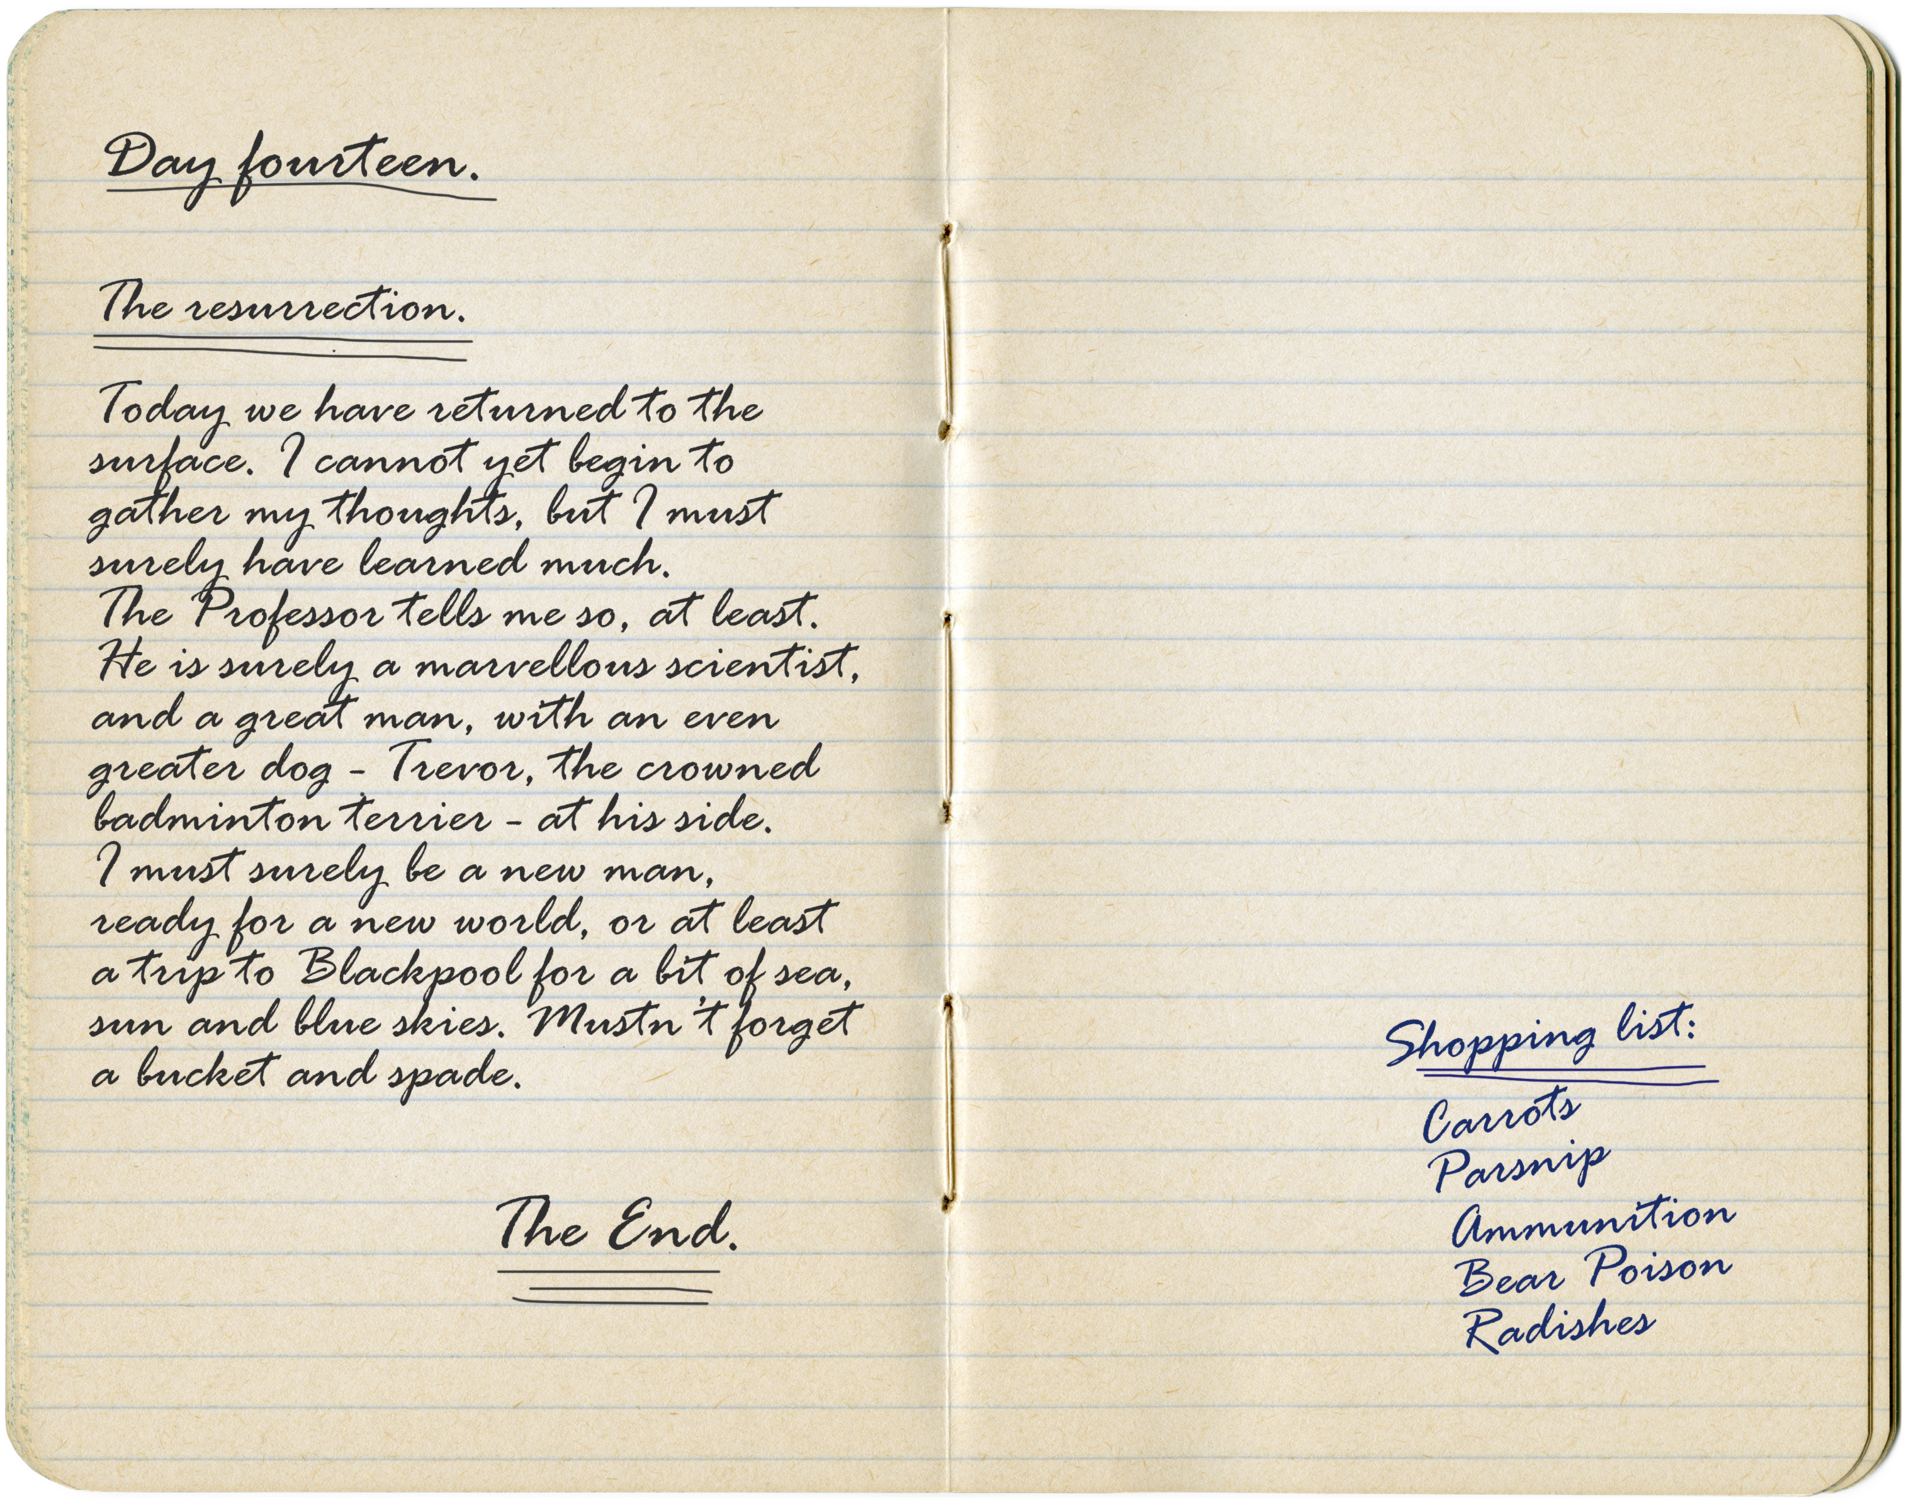 Day fourteen.
The resurrection.
Today we have returned to the
surface. I cannot yet begin to
gather my thoughts, but I must
surely have learned much.
The Professor tells me so, at least.
He is surely a marvellous scientist,
and a great man, with an even
greater dog - Trevor, the crowned
badminton terrier - at his side.
I must surely be a new man,
ready for a new world, or at least
a trip to Blackpool for a bit of sea,
sun and blue skies. Mustn't forget
a bucket and spade.
The End.
Shopping list:
Carrots
Parsnip
Ammunition
Bear Poison
Radishes